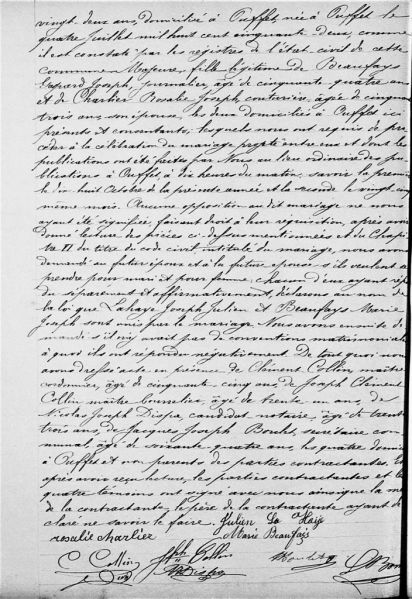 vingt deux ans, domiciliée à Ouffet, née à Ouffet le
quatre Juillet mil huit cent cinquante deux, comme
il est constaté par les registres de l'état civil de cette
commune Majeure, fille légitime de Beaufays
Joseph, journalier, âgé de cinquante quatre ans
et de Charlier Rosalie Joseph, couturière, âgée de cinquan
trois ans son épouse, les deux domiciliés à Ouffet ici
présents et consentants; lesquels nous ont requis de pro
céder à la célébration du mariage projeté entre eux et dont les
publications ont été faites par Nous au lieu ordinaire des pu
blications à Ouffet, à dix heures du matin, savoir la premiè
re du huit Octobre de la présente année et la seconde le vingt cinq
même mois. Aucune opposition au dit mariage ne nous
ayant été signifiée, faisant droit à leur réquisition, après avoir
donné lecture des pièces ci-dessus mentionnées et du Chapi
tre VI du titre du code civil intitulé du mariage, nous avons
demandé au futur époux et à la future épouse s'ils veulent se
prendre pour mari et pour femme, chacun d'eux ayant répon
du séparément et affirmativement, déclarons au nom de
la loi que Lahaye Joseph Julien et Beaufays Marie
Joseph sont unis par le mariage. Nous avons ensuite de
mandé s'il y avait pas de conventions matrimoniales
à quoi ils ont répondu négativement. De tout quoi nous
avons dressé acte en présence de Clément Collin, maître
cordonnier, âgé de cinquante cinq ans, de Joseph Clément
Collin maître bourrelier, âgé de trente un ans, de
Nicolas Joseph Dispa, candidat notaire, âgé de trente
trois ans, de Jacques Joseph secrétaire com
munal, âgé de soixante quatre ans, les quatre domici
à Ouffet et non parents des parties contractantes. Et
après avoir reçu lecture, les parties contractantes et les
quatre témoins ont signé avec nous ainsi que la mè
de la contractante, le père de la contractante ayant dé
claré ne savoir le faire. Julien La Haye
rosalie charlier Marie Beaufays
C Collin Jph Collin